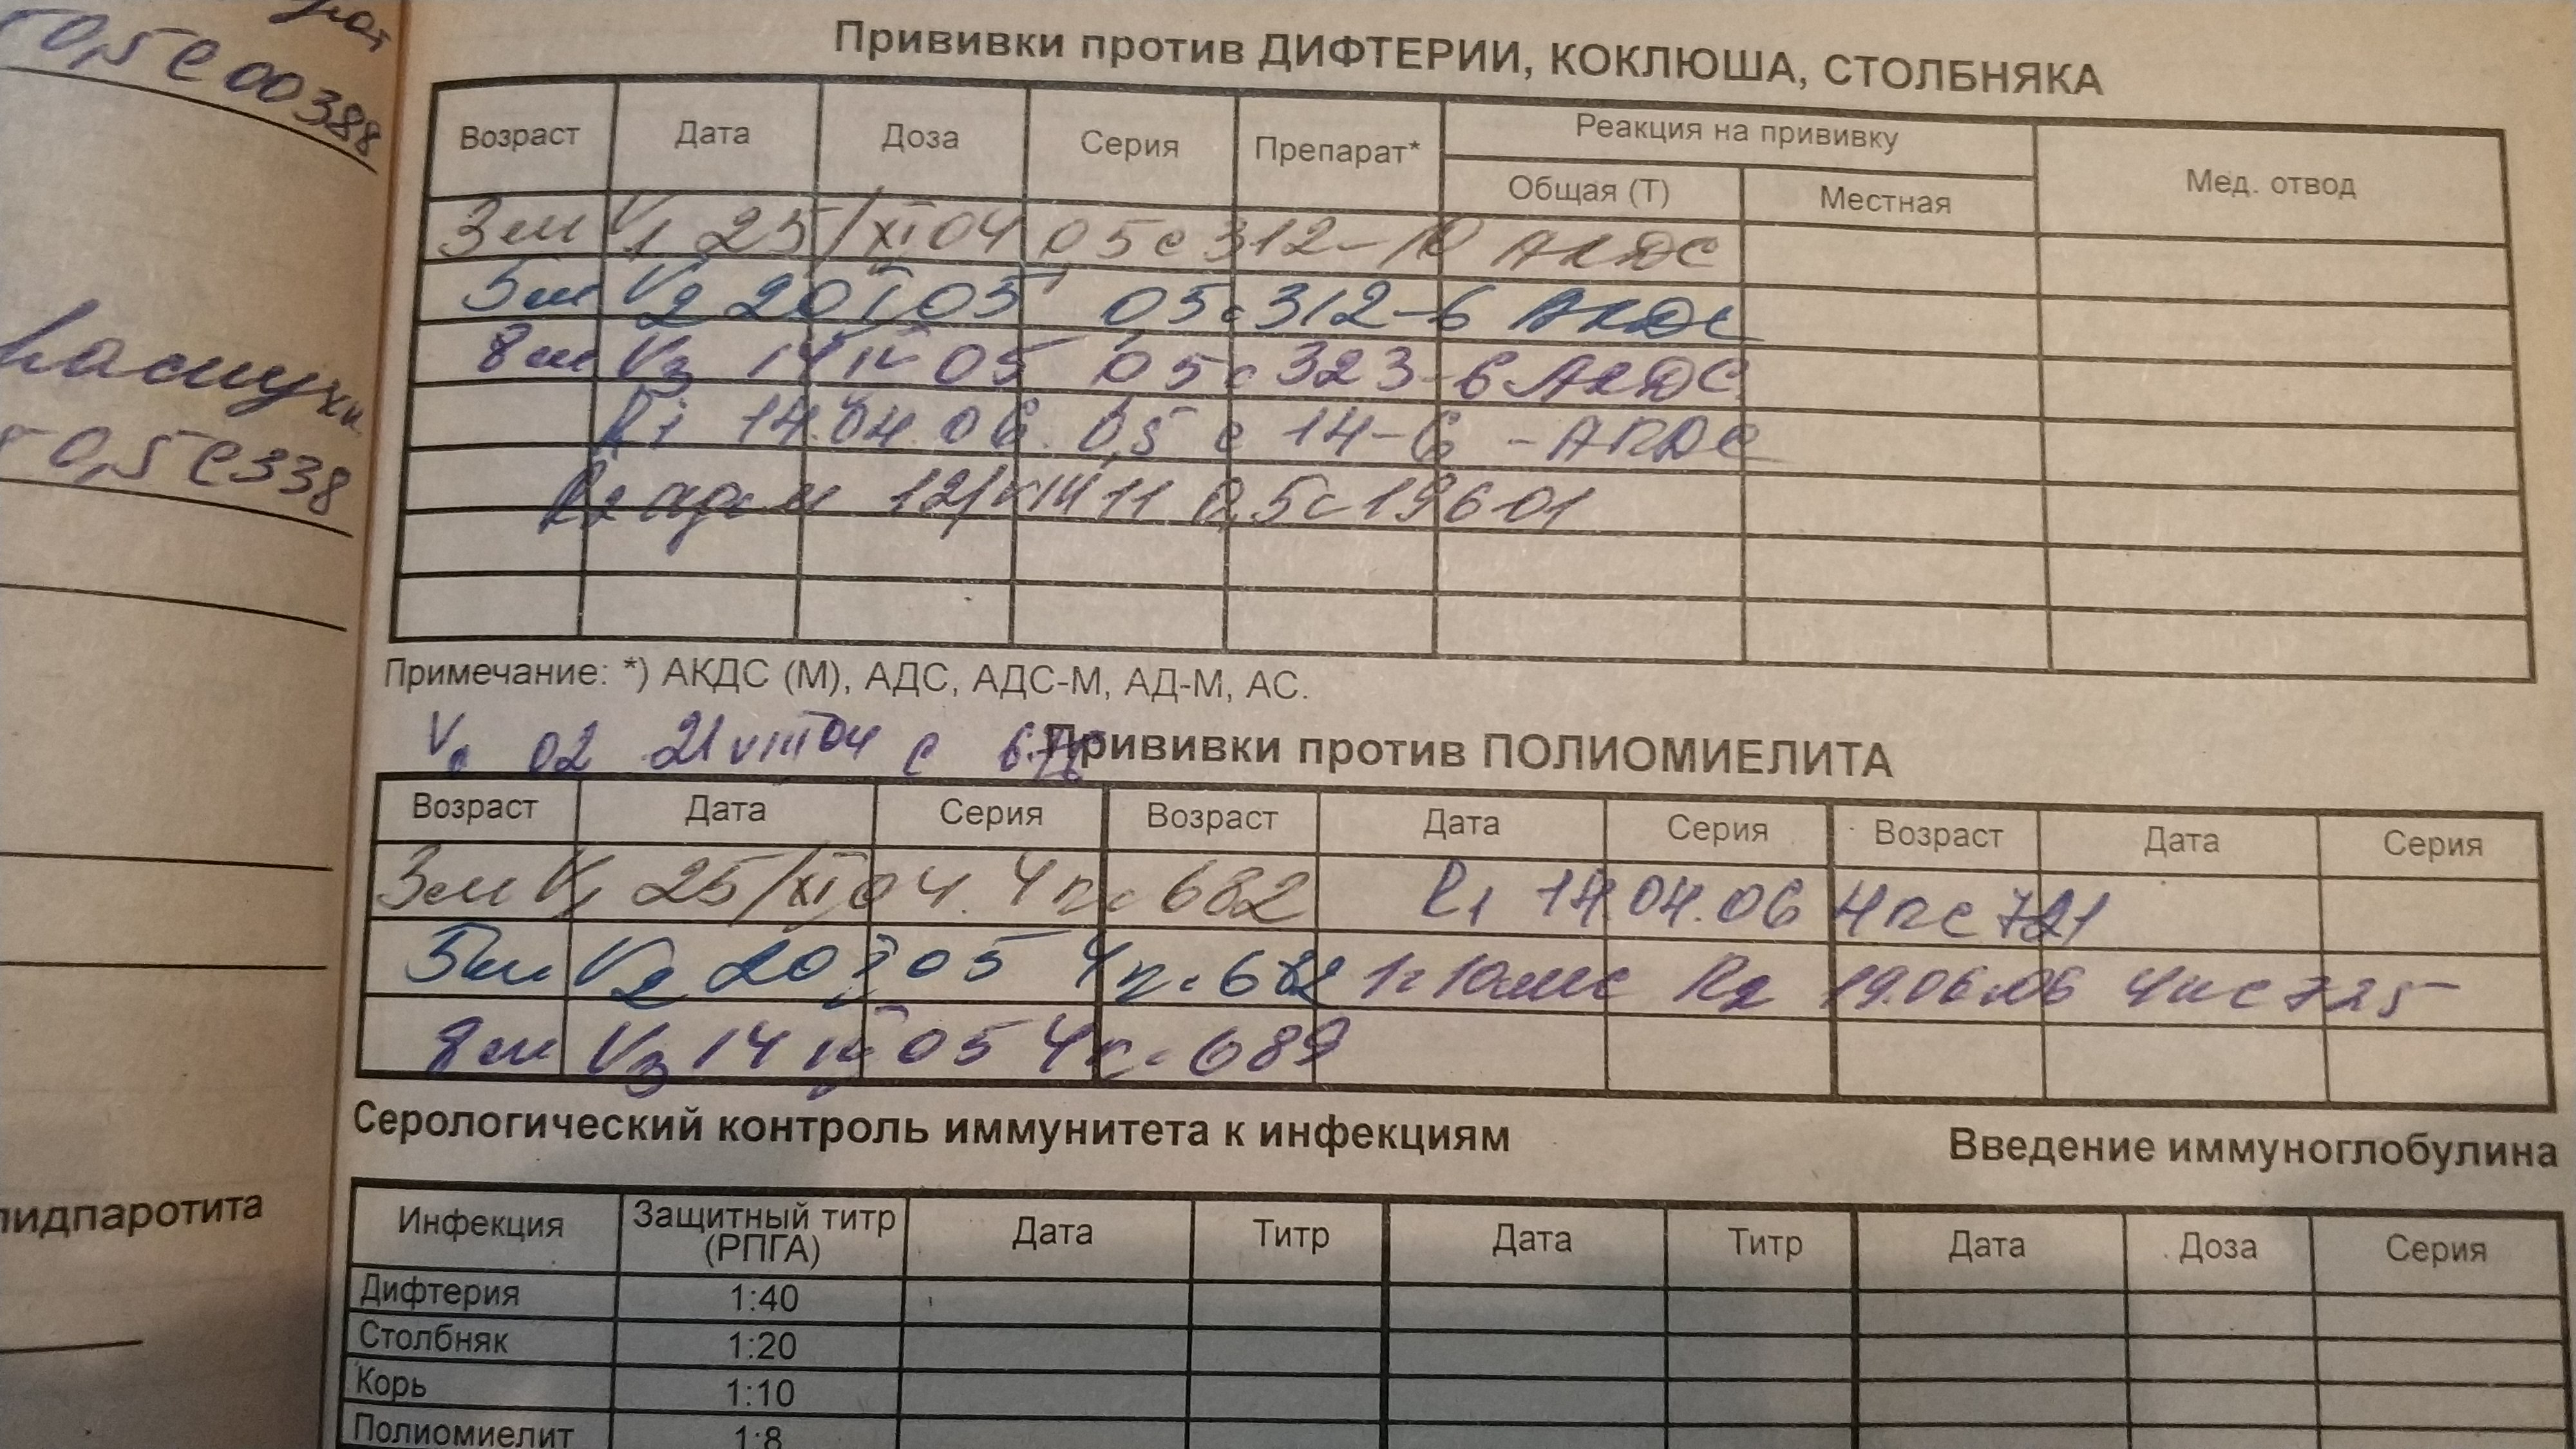 0,5 с 00388
0,5 с 338
лидпаротита
Прививки против ДИФТЕРИИ, КОКЛЮША, СТОЛБНЯКА
Возраст Дата Доза Серия Препарат* Реакция на прививку Мед. отвод
Общая (Т) Местная
3 м V1 25/XI 04 0,5 с 312-10 АКДС
5 м V2 20 I 05 0,5 с 312-6 АКДС
8 м V3 14 IV 05 0,5 с 323-6 АКДС
R1 14.04.06. 0,5 с 14-6 - АКДС
R2 адс м 12/VIII 11 0,5 с 19601
Примечание: *) АКДС (М), АДС, АДС-М, АД-М, АС.
V0 02 21 VIII 04 с
Прививки против ПОЛИОМИЕЛИТА
Возраст Дата Серия Возраст Дата Серия Возраст Дата Серия
3 м V1 25/XI 04. 4к с 682 R1 14.04.06 4к с 721
5 м V2 20 I 05 4к с 682 1г 10 мес R2 19.06.06 4к с 725
8 м V3 14 IV 05 4к с 689
Серологический контроль иммунитета к инфекциям Введение иммуноглобулина
Инфекция Защитный титр (РПГА) Дата Титр Дата Титр Дата Доза Серия
Дифтерия 1:40
Столбняк 1:20
Корь 1:10
Полиомиелит 1:8